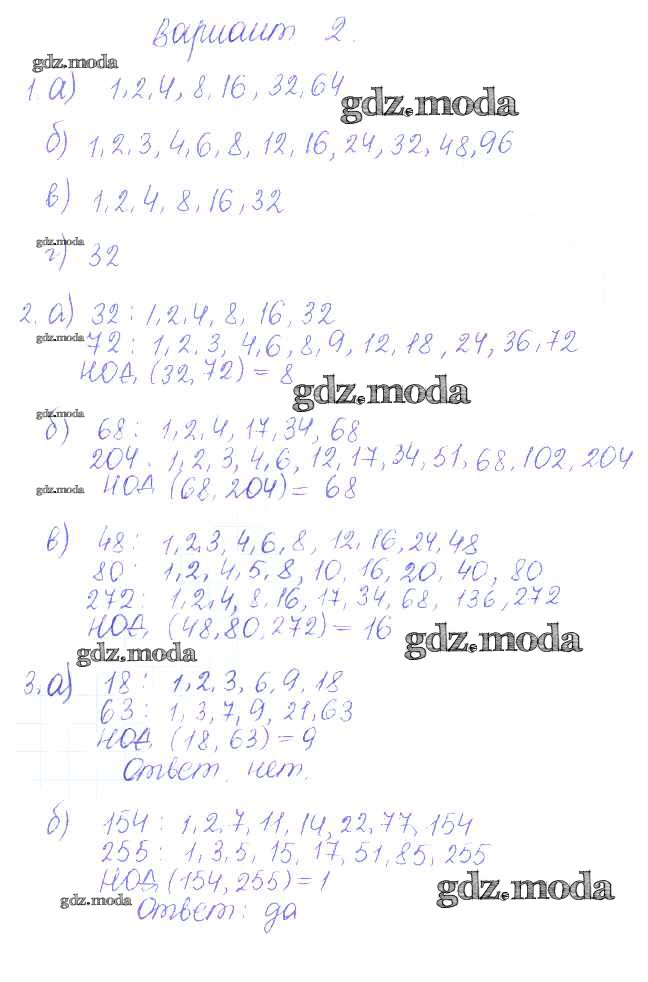 Вариант 2.
gdz.moda
1. а) 1, 2, 4, 8, 16, 32, 64
gdz.moda
б) 1, 2, 3, 4, 6, 8, 12, 16, 24, 32, 48, 96
в) 1, 2, 4, 8, 16, 32
gdz.moda
г) 32
2. а) 32 : 1, 2, 4, 8, 16, 32
gdz.moda
72 : 1, 2, 3, 4, 6, 8, 9, 12, 18, 24, 36, 72
НОД (32, 72) = 8
gdz.moda
gdz.moda
б) 68 : 1, 2, 4, 17, 34, 68
204 : 1, 2, 3, 4, 6, 12, 17, 34, 51, 68, 102, 204
gdz.moda
НОД (68, 204) = 68
в) 48 : 1, 2, 3, 4, 6, 8, 12, 16, 24, 48
80 : 1, 2, 4, 5, 8, 10, 16, 20, 40, 80
272 : 1, 2, 4, 8, 16, 17, 34, 68, 136, 272
НОД (48, 80, 272) = 16
gdz.moda
gdz.moda
3. а) 18 : 1, 2, 3, 6, 9, 18
63 : 1, 3, 7, 9, 21, 63
НОД (18, 63) = 9
Ответ. нет.
б) 154 : 1, 2, 7, 11, 14, 22, 77, 154
255 : 1, 3, 5, 15, 17, 51, 85, 255
НОД (154, 255) = 1
gdz.moda
gdz.moda
Ответ: да